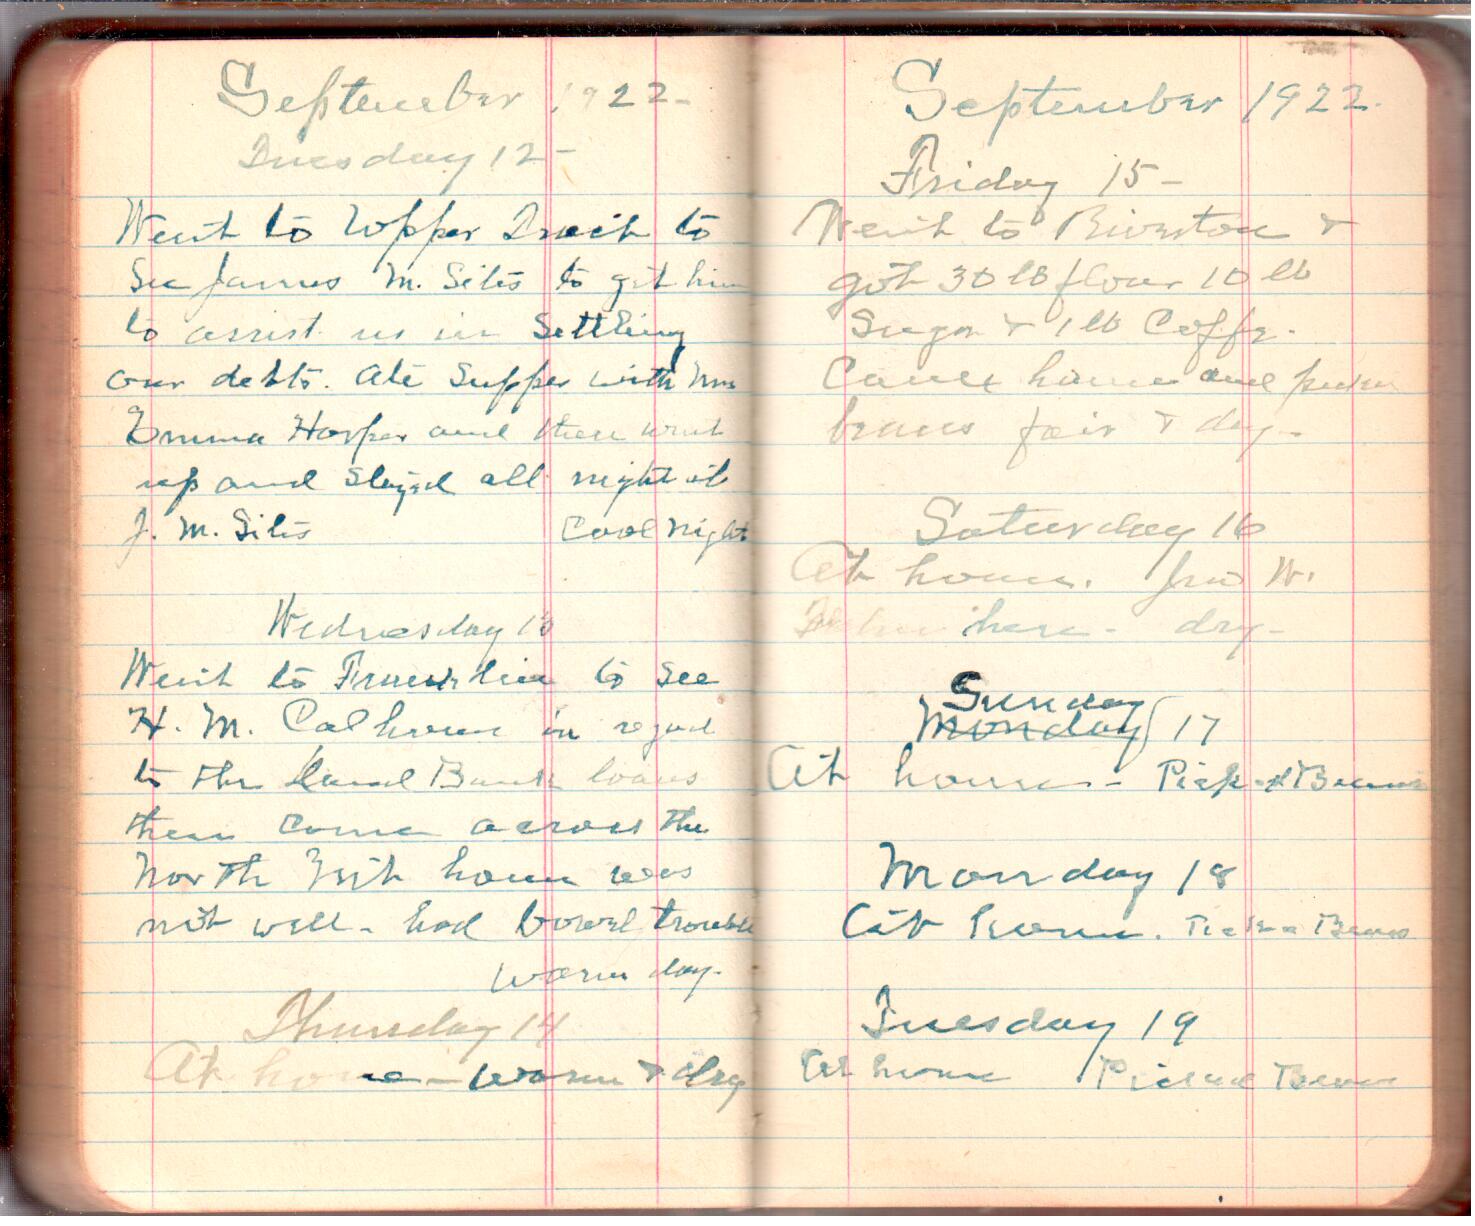 September 1922-
Tuesday 12-
Went to Upper Tract to
See James M. Sites to get him
to assist us in Settling
our debts. Ate Supper with Mrs
Emma Harper and then went
up and Stayed all night at
J. M. Sites Cool Night
Wednesday 13
Went to Franklin to see
H. M. Calhoun in regard
to the Land Bank loans
then come across the
North Mt. home was
not well - had bowel trouble
warm day-
Thursday 14
At home - warm & dry
September 1922.
Friday 15-
Went to Riverton &
got 30 lb flour 10 lb
Sugar & 1 lb Coffe.
Came home and
beans fair & dry-
Saturday 16
At home. Jno W.
here - dry-
Sunday
Monday 17
At home - Picked Beans
Monday 18
At home. Picked Beans
Tuesday 19
At home Picked Beans